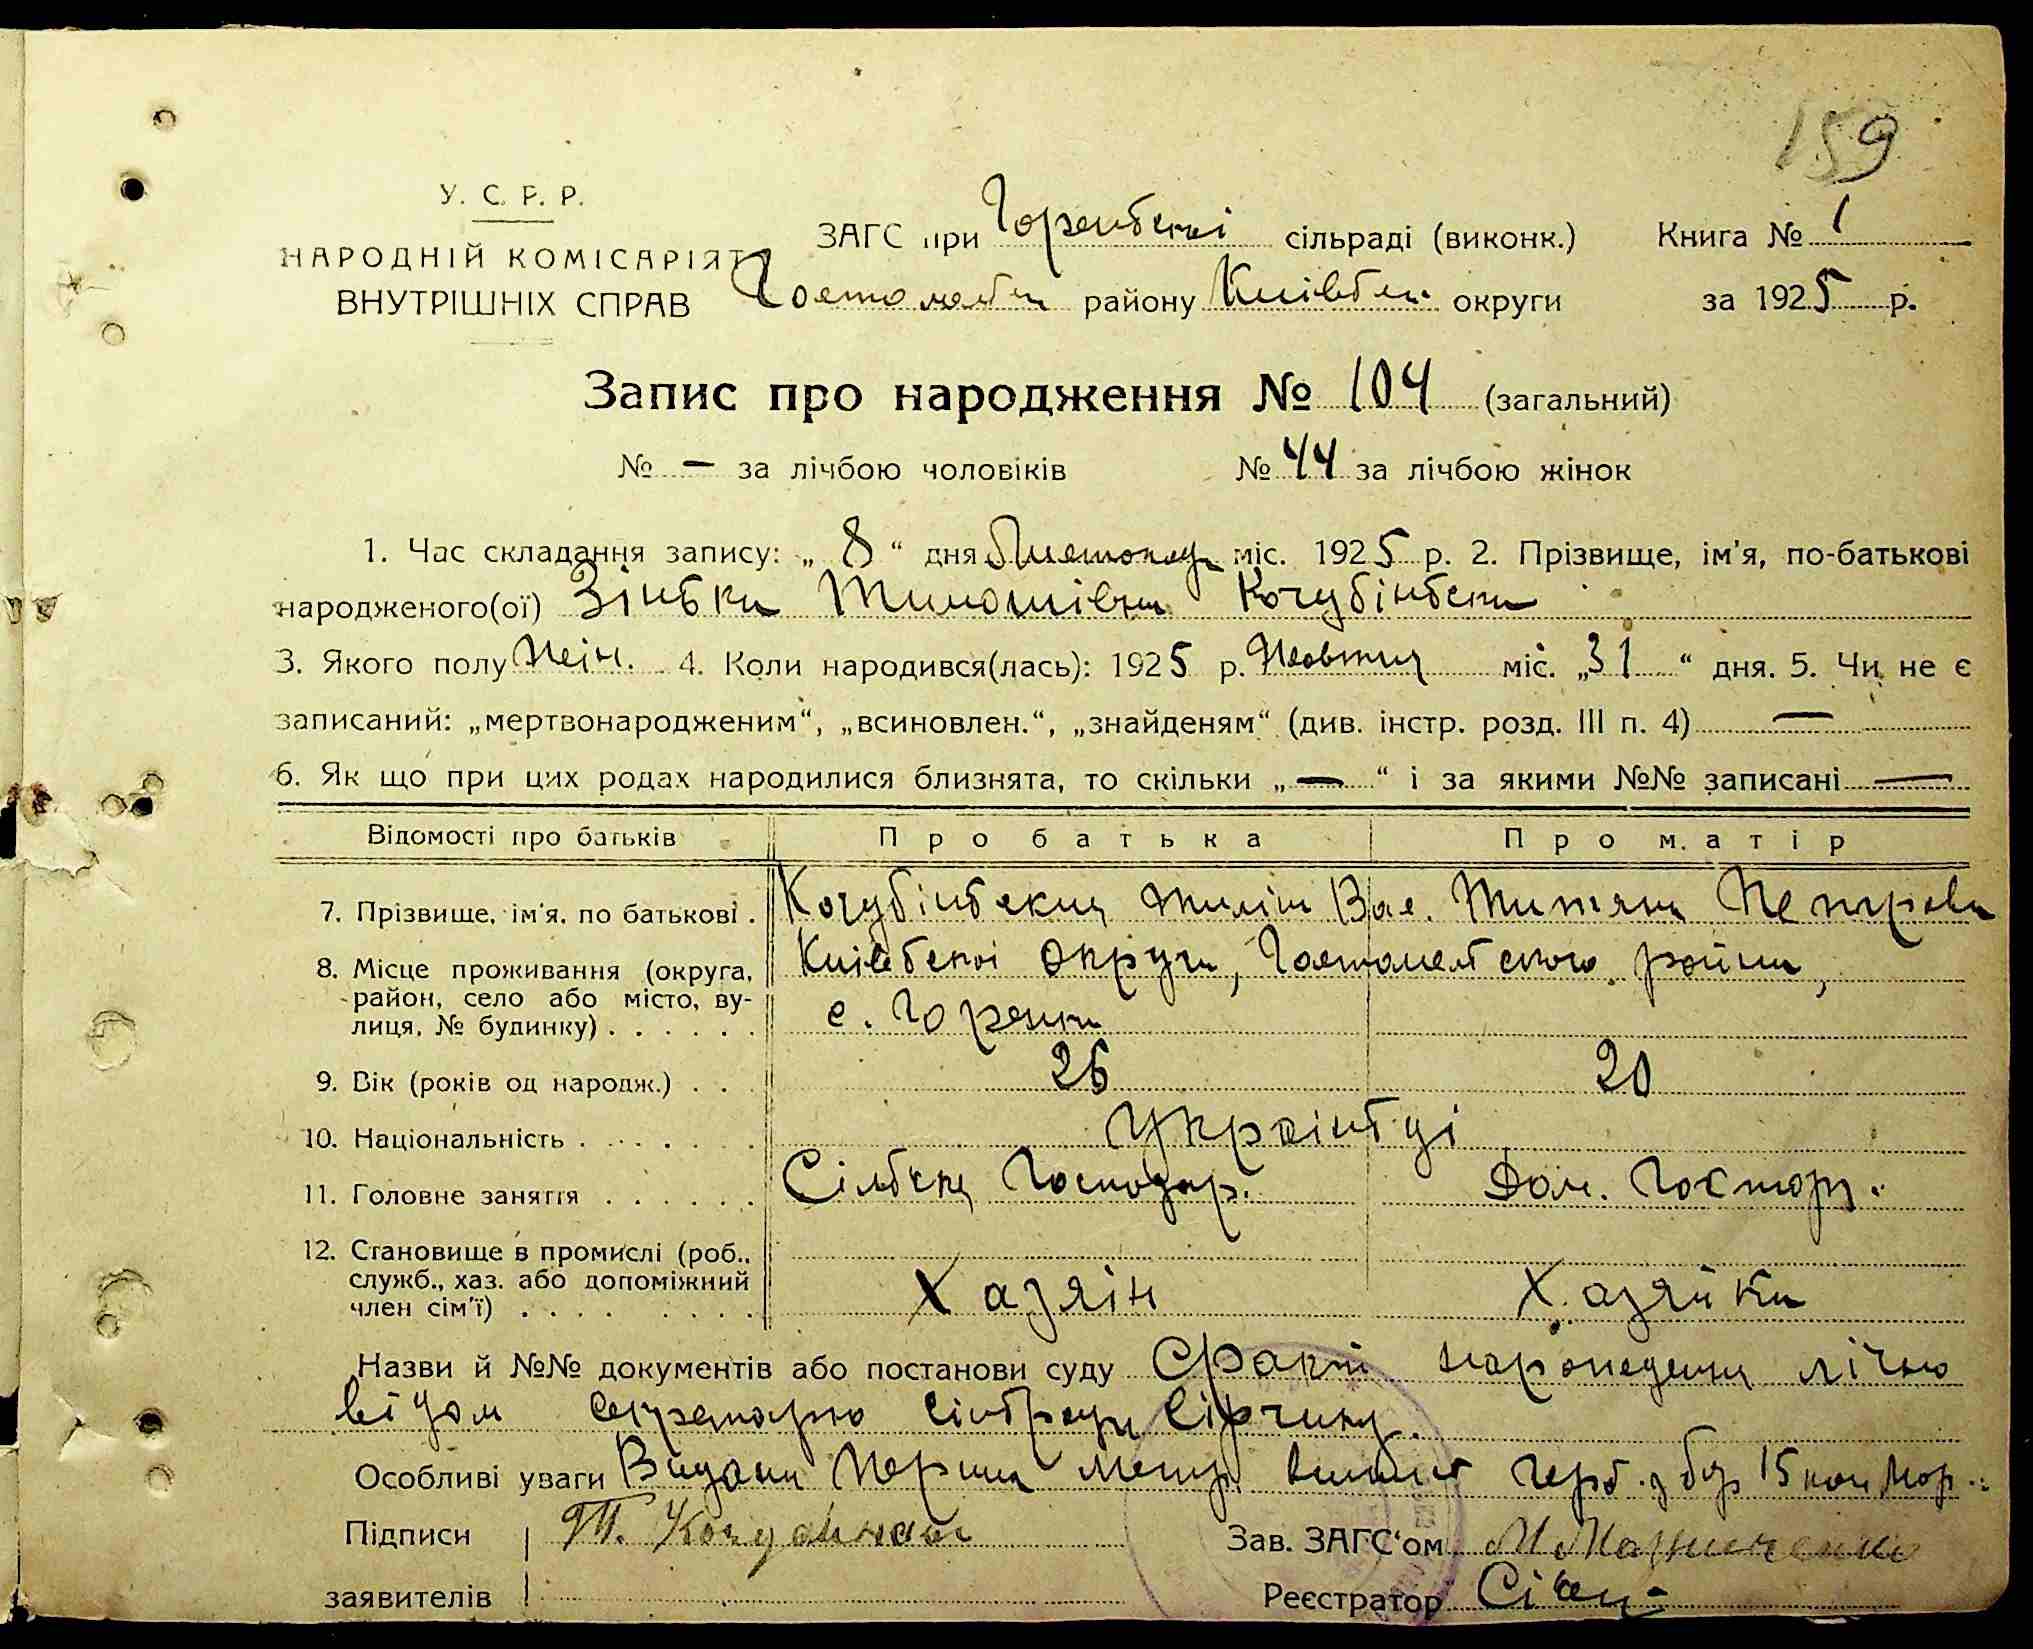 159
У. С. Р. Р.
НАРОДНІЙ КОМІСАРІЯТ
ВНУТРІШНІХ СПРАВ
ЗАГС при Горенській сільраді (виконк.) Книга № 1
Гостомельськ району Київськ округи за 1925 р.
Запис про народження № 104 (загальний)
№ — за лічбою чоловіків № 44 за лічбою жінок
1. Час складання запису: „ 8 “ дня Листопад міс. 1925 р. 2. Прізвище, ім'я, по-батькові
народженого(ої) Зінька Тимошівна Кочубінська
3. Якого полу жін. 4. Коли народився(лась): 1925 р. Жовтня міс. „31“ дня. 5. Чи не є
записаний: „мертвонародженим“, „всиновлен.“, „знайденям“ (див. інстр. розд. III п. 4) —
6. Як що при цих родах народилися близнята, то скільки „ — “ і за якими №№ записані —
Відомості про батьків Про батька Про матір
7. Прізвище, ім'я, по батькові . Кочубінський Тиміш Вас. Титяна Петрівна
8. Місце проживання (округа, Київської округи, Гостомельського району,
район, село або місто, ву- с. Горенка
лиця, № будинку) . . . . . .
9. Вік (років од народж.) . . 26 20
10. Національність . . . . . . Українці
11. Головне заняття . . . . . . Сільськ Господар. Дом. Господ.
12. Становище в промислі (роб.,
служб., хаз. або допоміжний Хазяін Хазяйка
член сім'ї) . . . . . . . .
Назви й №№ документів або постанови суду Факт народження лічно
відом секретарю сільради Сірчину.
Особливі уваги Видана перша метр. герб. збір 15 коп
Підписи Т. Кочубінський Зав. ЗАГС‘ом
заявителів Реєстратор